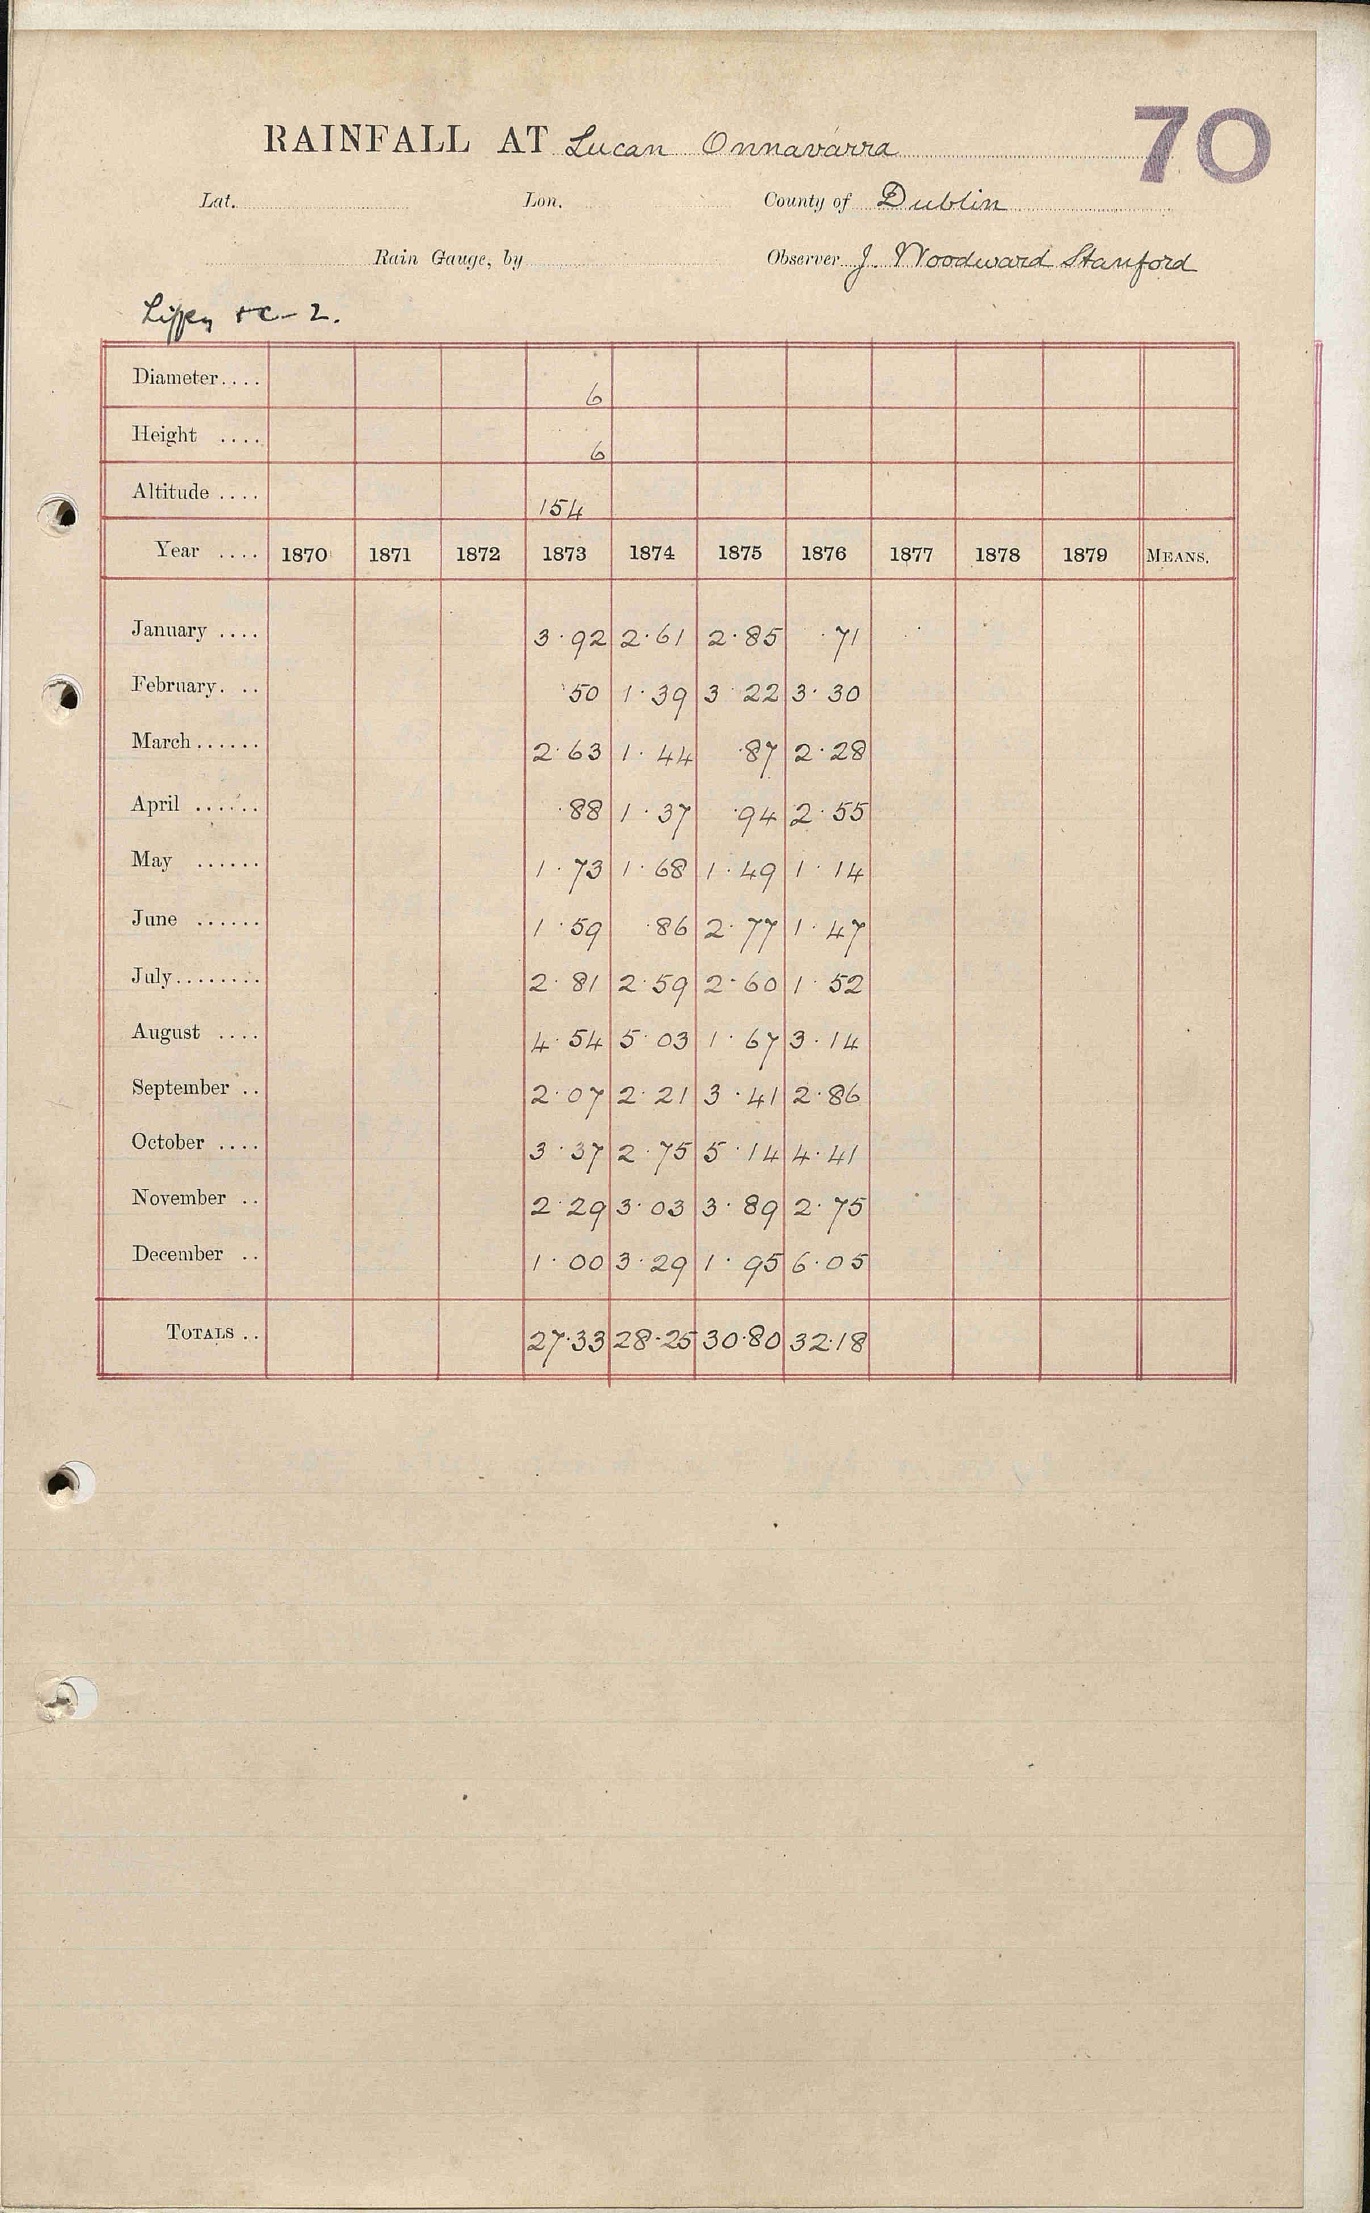 70
RAINFALL AT Lucan Onnavarra
Lat. Lon. County of Dublin
Rain Gauge, by Observer J. Woodward Stanford
- 2.
Diameter.... 6
Height .... 6
Altitude .... 154
Year .... 1870 1871 1872 1873 1874 1875 1876 1877 1878 1879 MEANS.
January .... 3.92 2.61 2.85 .71
February. .. .50 1.39 3.22 3.30
March...... 2.63 1.44 .87 2.28
April ...... .88 1.37 .94 2.55
May ...... 1.73 1.68 1.49 1.14
June ...... 1.59 .86 2.77 1.47
July........ 2.81 2.59 2.60 1.52
August .... 4.54 5.03 1.67 3.14
September .. 2.07 2.21 3.41 2.86
October .... 3.37 2.75 5.14 4.41
November .. 2.29 3.03 3.89 2.75
December .. 1.00 3.29 1.95 6.05
TOTALS .. 27.33 28.25 30.80 32.18